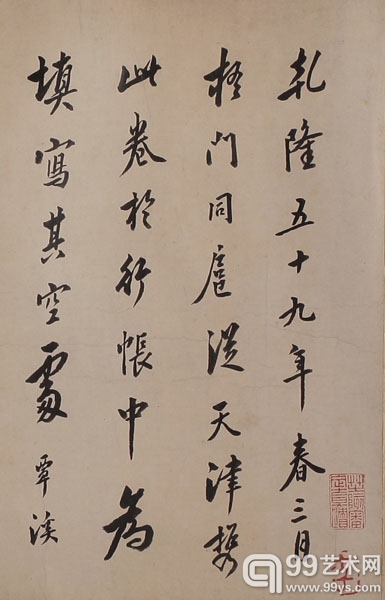 乾隆五十九年春三月
梧門同扈從天津携
此卷於行帳中為
填寫其空處 覃溪
99艺术网
www.99ys.com